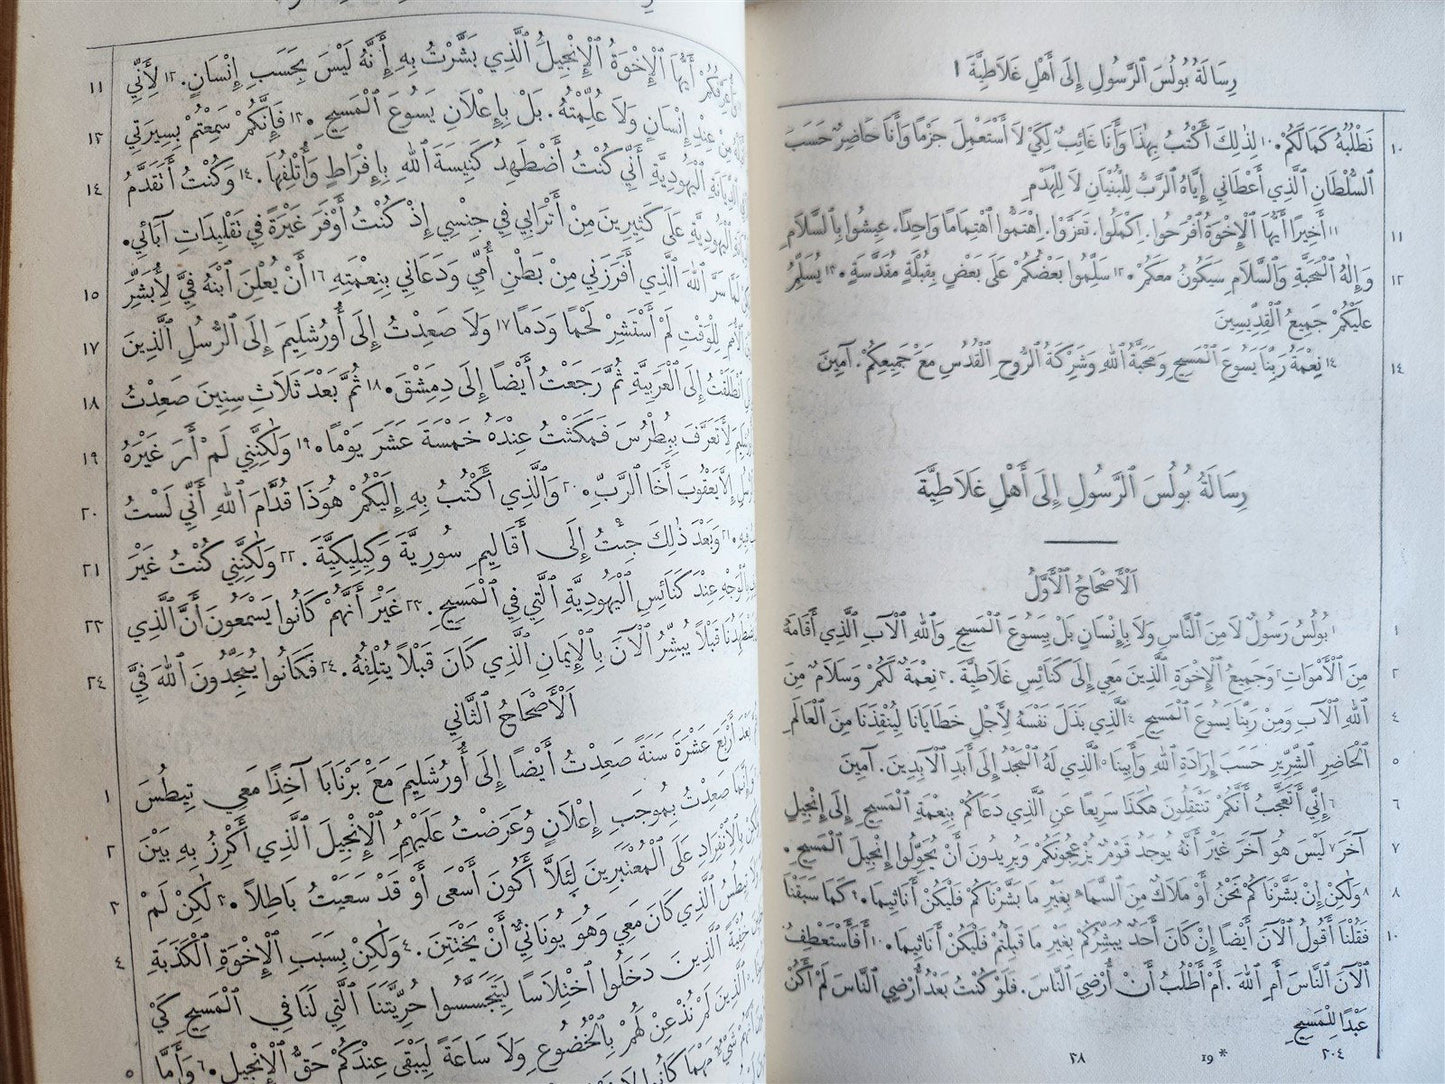 رِسَالَةُ بُولُسَ ٱلرَّسُولِ إِلَى أَهْلِ غَلَاطِيَّةَ ١
١٠ نَطْلُبُهُ كَمَالَكُمْ. ١٠ لِذٰلِكَ أَكْتُبُ بِهٰذَا وَأَنَا غَائِبٌ لِكَيْ لَا أَسْتَعْمِلَ جَزْمًا وَأَنَا حَاضِرٌ حَسَبَ
ٱلسُّلْطَانِ ٱلَّذِي أَعْطَانِي إِيَّاهُ ٱلرَّبُّ لِلْبُنْيَانِ لَا لِلْهَدْمِ
١١ ١١ أَخِيرًا أَيُّهَا ٱلْإِخْوَةُ ٱفْرَحُوا. اِكْمَلُوا. تَعَزَّوْا. اِهْتَمُّوا ٱهْتِمَامًا وَاحِدًا. عِيشُوا بِٱلسَّلَامِ
١٢ وَإِلٰهُ ٱلْمَحَبَّةِ وَٱلسَّلَامِ سَيَكُونُ مَعَكُمْ. ١٢ سَلِّمُوا بَعْضُكُمْ عَلَى بَعْضٍ بِقُبْلَةٍ مُقَدَّسَةٍ. ١٣ يُسَلِّمُ
عَلَيْكُمْ جَمِيعُ ٱلْقِدِّيسِينَ
١٤ ١٤ نِعْمَةُ رَبِّنَا يَسُوعَ ٱلْمَسِيحِ وَمَحَبَّةُ ٱللهِ وَشَرِكَةُ ٱلرُّوحِ ٱلْقُدُسِ مَعَ جَمِيعِكُمْ. آمِينَ
رِسَالَةُ بُولُسَ ٱلرَّسُولِ إِلَى أَهْلِ غَلَاطِيَّةَ
اَلْأَصْحَاحُ ٱلْأَوَّلُ
١ ١ بُولُسُ رَسُولٌ لَا مِنَ ٱلنَّاسِ وَلَا بِإِنْسَانٍ بَلْ بِيَسُوعَ ٱلْمَسِيحِ وَٱللهِ ٱلْآبِ ٱلَّذِي أَقَامَهُ
٢ مِنَ ٱلْأَمْوَاتِ ٢ وَجَمِيعُ ٱلْإِخْوَةِ ٱلَّذِينَ مَعِي إِلَى كَنَائِسِ غَلَاطِيَّةَ. ٣ نِعْمَةٌ لَكُمْ وَسَلَامٌ مِنَ
٤ ٱللهِ ٱلْآبِ وَمِنْ رَبِّنَا يَسُوعَ ٱلْمَسِيحِ ٤ ٱلَّذِي بَذَلَ نَفْسَهُ لِأَجْلِ خَطَايَانَا لِيُنْقِذَنَا مِنَ ٱلْعَالَمِ
٥ ٱلْحَاضِرِ ٱلشِّرِّيرِ حَسَبَ إِرَادَةِ ٱللهِ وَأَبِينَا ٥ ٱلَّذِي لَهُ ٱلْمَجْدُ إِلَى أَبَدِ ٱلْآبِدِينَ. آمِينَ
٦ ٦ إِنِّي أَتَعَجَّبُ أَنَّكُمْ تَنْتَقِلُونَ هٰكَذَا سَرِيعًا عَنِ ٱلَّذِي دَعَاكُمْ بِنِعْمَةِ ٱلْمَسِيحِ إِلَى إِنْجِيلٍ
٧ آخَرَ ٧ لَيْسَ هُوَ آخَرَ غَيْرَ أَنَّهُ يُوجَدُ قَوْمٌ يُزْعِجُونَكُمْ وَيُرِيدُونَ أَنْ يُحَوِّلُوا إِنْجِيلَ ٱلْمَسِيحِ.
٨ ٨ وَلٰكِنْ إِنْ بَشَّرْنَاكُمْ نَحْنُ أَوْ مَلَاكٌ مِنَ ٱلسَّمَاءِ بِغَيْرِ مَا بَشَّرْنَاكُمْ فَلْيَكُنْ أَنَاثِيمَا. ٩ كَمَا سَبَقْنَا
١٠ فَقُلْنَا أَقُولُ ٱلْآنَ أَيْضًا إِنْ كَانَ أَحَدٌ يُبَشِّرُكُمْ بِغَيْرِ مَا قَبِلْتُمْ فَلْيَكُنْ أَنَاثِيمَا. ١٠ أَفَأَسْتَعْطِفُ
ٱلْآنَ ٱلنَّاسَ أَمِ ٱللهَ. أَمْ أَطْلُبُ أَنْ أُرْضِيَ ٱلنَّاسَ. فَلَوْ كُنْتُ بَعْدُ أُرْضِي ٱلنَّاسَ لَمْ أَكُنْ
عَبْدًا لِلْمَسِيحِ
٢٠٤ 19 * ٢٨
أَيُّهَا ٱلْإِخْوَةُ ٱلْإِنْجِيلَ ٱلَّذِي بَشَّرْتُ بِهِ أَنَّهُ لَيْسَ بِحَسَبِ إِنْسَانٍ. ١٢ لِأَنِّي ١١
مِنْ عِنْدِ إِنْسَانٍ وَلَا عُلِّمْتُهُ. بَلْ بِإِعْلَانِ يَسُوعَ ٱلْمَسِيحِ. ١٣ فَإِنَّكُمْ سَمِعْتُمْ بِسِيرَتِي ١٣
ٱلدِّيَانَةِ ٱلْيَهُودِيَّةِ أَنِّي كُنْتُ أَضْطَهِدُ كَنِيسَةَ ٱللهِ بِإِفْرَاطٍ وَأُتْلِفُهَا. ١٤ وَكُنْتُ أَتَقَدَّمُ ١٤
ٱلْيَهُودِيَّةِ عَلَى كَثِيرِينَ مِنْ أَتْرَابِي فِي جِنْسِي إِذْ كُنْتُ أَوْفَرَ غَيْرَةً فِي تَقْلِيدَاتِ آبَائِي.
لَمَّا سَرَّ ٱللهَ ٱلَّذِي أَفْرَزَنِي مِنْ بَطْنِ أُمِّي وَدَعَانِي بِنِعْمَتِهِ ١٦ أَنْ يُعْلِنَ ٱبْنَهُ فِيَّ لِأُبَشِّرَ ١٥
ٱلْأُمَمِ لِلْوَقْتِ لَمْ أَسْتَشِرْ لَحْمًا وَدَمًا ١٧ وَلَا صَعِدْتُ إِلَى أُورُشَلِيمَ إِلَى ٱلرُّسُلِ ٱلَّذِينَ ١٧
ٱنْطَلَقْتُ إِلَى ٱلْعَرَبِيَّةِ ثُمَّ رَجَعْتُ أَيْضًا إِلَى دِمَشْقَ. ١٨ ثُمَّ بَعْدَ ثَلَاثِ سِنِينَ صَعِدْتُ ١٨
لِأَتَعَرَّفَ بِبُطْرُسَ فَمَكَثْتُ عِنْدَهُ خَمْسَةَ عَشَرَ يَوْمًا. ١٩ وَلٰكِنَّنِي لَمْ أَرَ غَيْرَهُ ١٩
إِلَّا يَعْقُوبَ أَخَا ٱلرَّبِّ. ٢٠ وَٱلَّذِي أَكْتُبُ بِهِ إِلَيْكُمْ هُوَذَا قُدَّامَ ٱللهِ أَنِّي لَسْتُ ٢٠
٢١ وَبَعْدَ ذٰلِكَ جِئْتُ إِلَى أَقَالِيمِ سُورِيَّةَ وَكِيلِيكِيَّةَ. ٢٢ وَلٰكِنَّنِي كُنْتُ غَيْرَ ٢١
بِٱلْوَجْهِ عِنْدَ كَنَائِسِ ٱلْيَهُودِيَّةِ ٱلَّتِي فِي ٱلْمَسِيحِ. ٢٣ غَيْرَ أَنَّهُمْ كَانُوا يَسْمَعُونَ أَنَّ ٱلَّذِي ٢٣
قَبْلًا يُبَشِّرُ ٱلْآنَ بِٱلْإِيمَانِ ٱلَّذِي كَانَ قَبْلًا يُتْلِفُهُ. ٢٤ فَكَانُوا يُمَجِّدُونَ ٱللهَ فِيَّ ٢٤
اَلْأَصْحَاحُ ٱلثَّانِي
بَعْدَ أَرْبَعَ عَشْرَةَ سَنَةً صَعِدْتُ أَيْضًا إِلَى أُورُشَلِيمَ مَعَ بَرْنَابَا آخِذًا مَعِي تِيطُسَ ١
صَعِدْتُ بِمُوجَبِ إِعْلَانٍ وَعَرَضْتُ عَلَيْهِمِ ٱلْإِنْجِيلَ ٱلَّذِي أَكْرِزُ بِهِ بَيْنَ ٢
بِٱلِٱنْفِرَادِ عَلَى ٱلْمُعْتَبَرِينَ لِئَلَّا أَكُونَ أَسْعَى أَوْ قَدْ سَعَيْتُ بَاطِلًا. ٣ لٰكِنْ لَمْ ٣
تِيطُسُ ٱلَّذِي كَانَ مَعِي وَهُوَ يُونَانِيٌّ أَنْ يَخْتَتِنَ. ٤ وَلٰكِنْ بِسَبَبِ ٱلْإِخْوَةِ ٱلْكَذَبَةِ ٤
خُفْيَةً ٱلَّذِينَ دَخَلُوا ٱخْتِلَاسًا لِيَتَجَسَّسُوا حُرِّيَّتَنَا ٱلَّتِي لَنَا فِي ٱلْمَسِيحِ كَيْ
ٱلَّذِينَ لَمْ نُذْعِنْ لَهُمْ بِٱلْخُضُوعِ وَلَا سَاعَةً لِيَبْقَى عِنْدَكُمْ حَقُّ ٱلْإِنْجِيلِ. ٦ وَأَمَّا
شَيْءٌ مَهْمَا كَانُوا